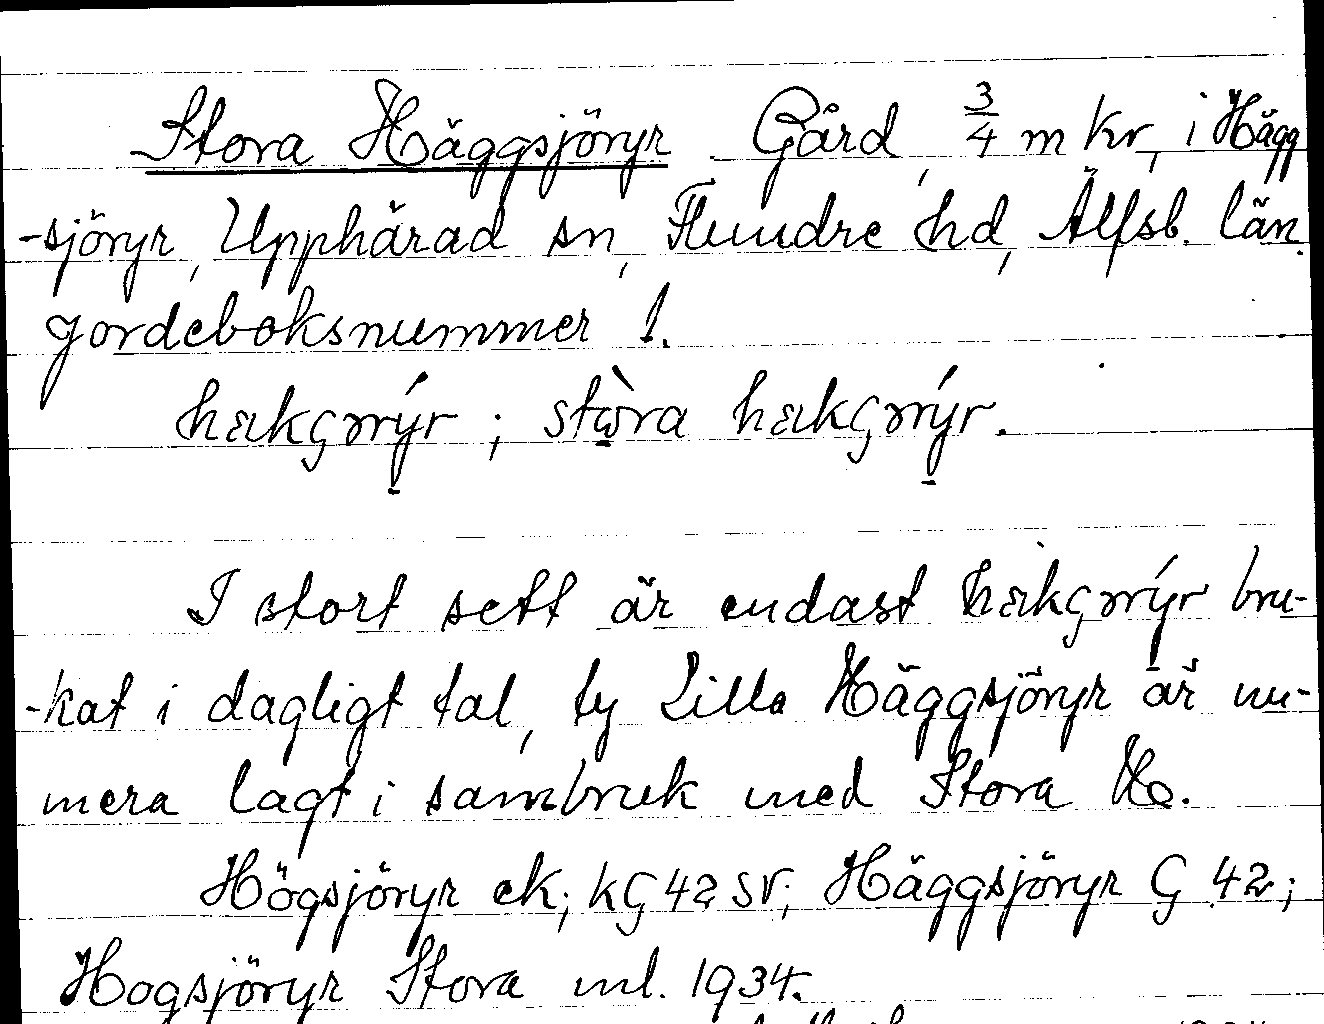 Stora Häggsjöryr Gård, 3/4 m kr, i Hägg
-sjöryr, Upphärad sn, Flundre hd, Älfsb. län.
Jordeboksnummer 1.
stòra
I stort sett är endast bru-
-kat i dagligt tal, ty Lilla Häggsjöryr är nu-
mera lagt i sambruk med Stora H.
Högsjöryr ek; kG 42 SV; Häggsjöryr G 42;
Hogsjöryr Stora ml. 1934.